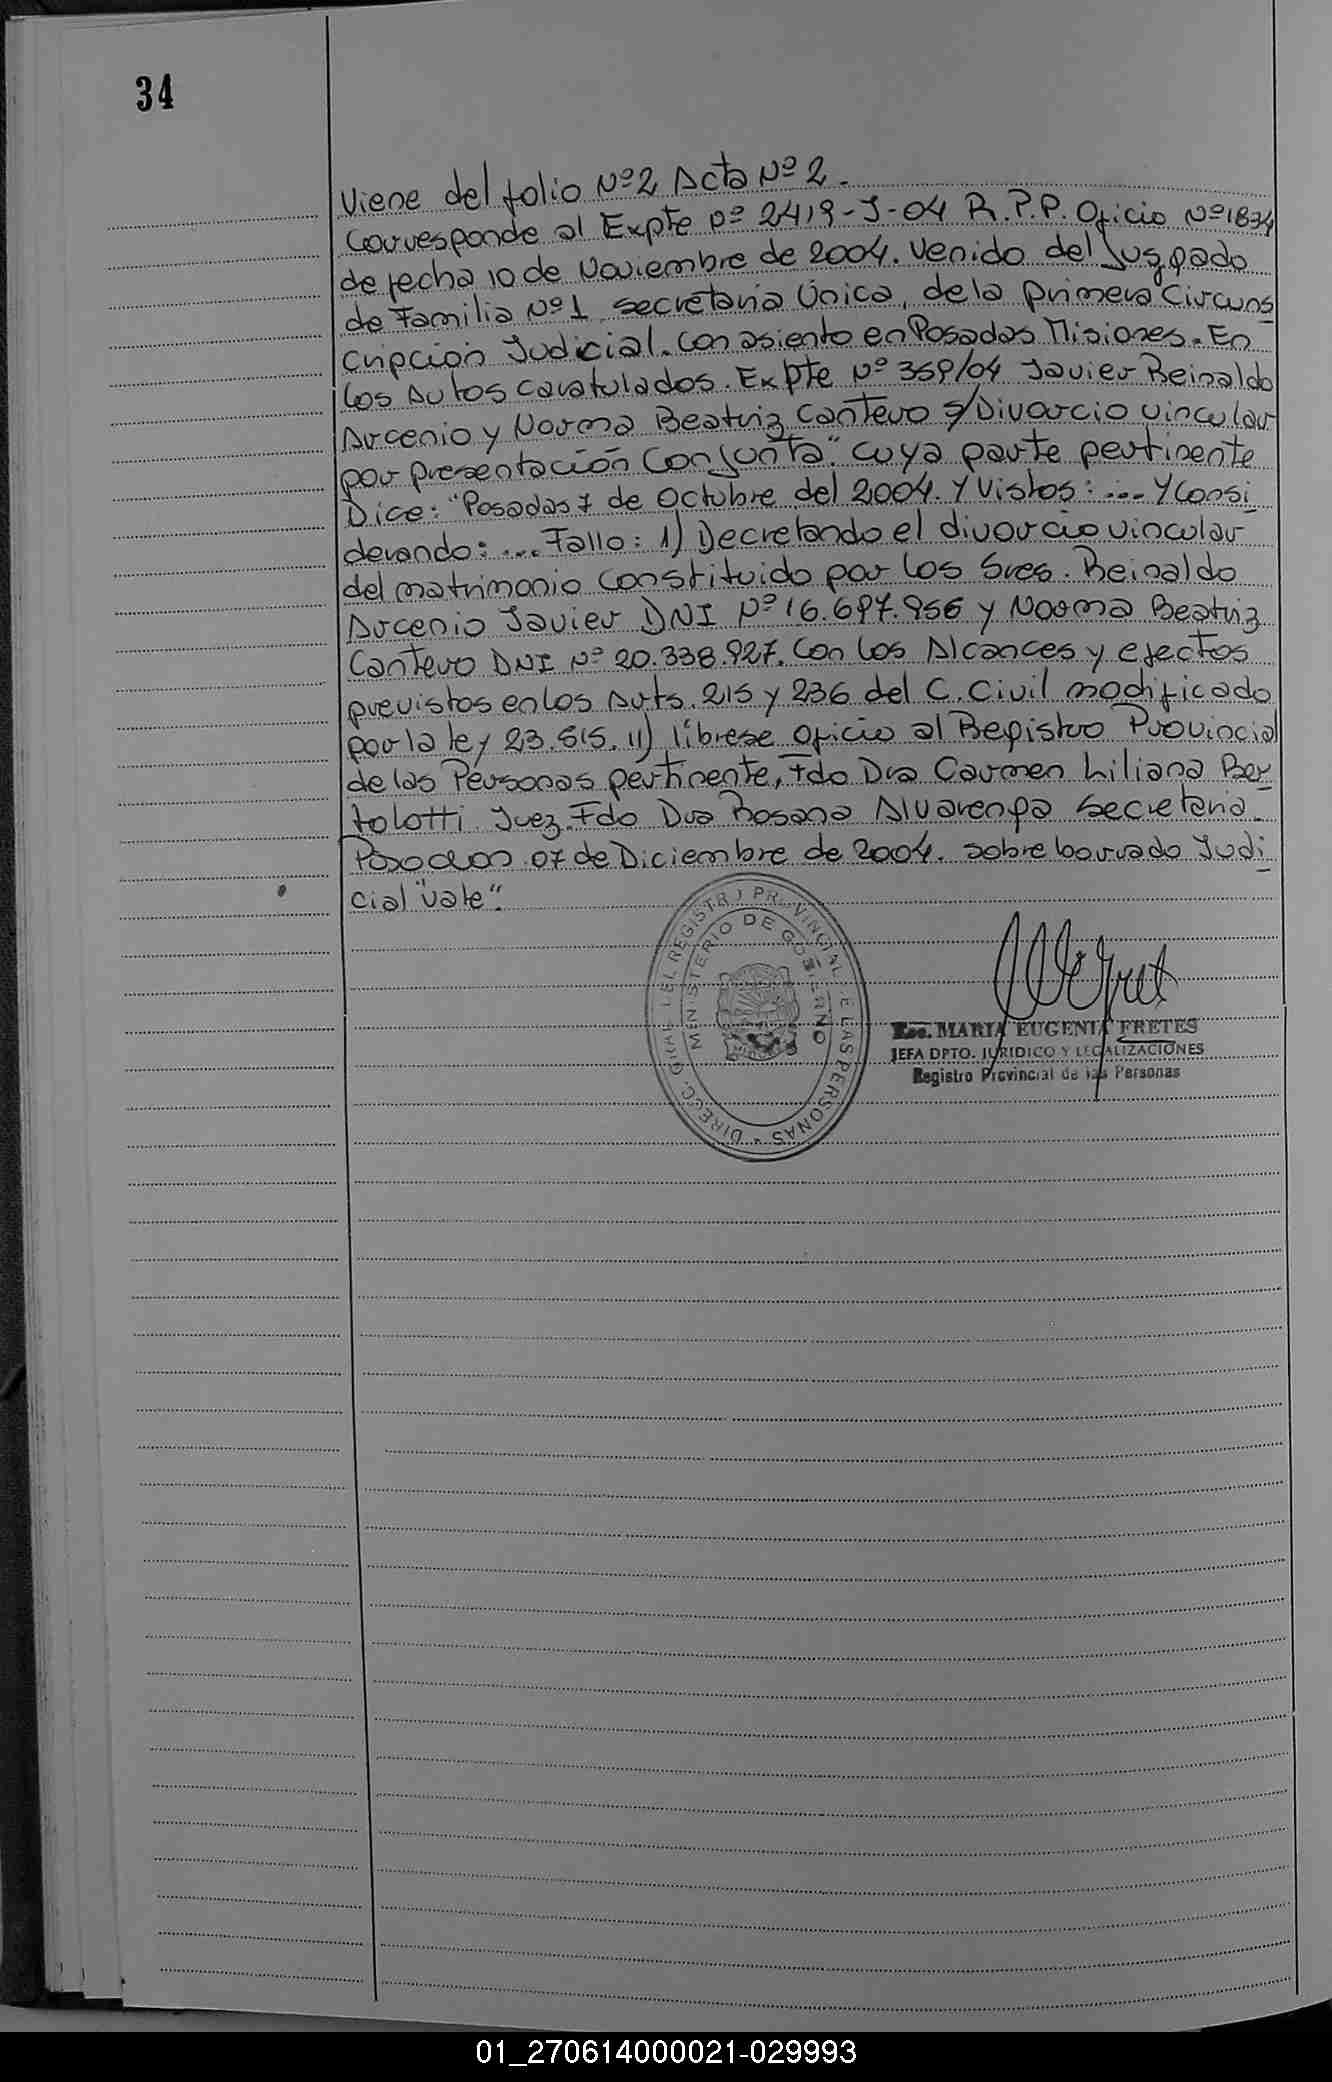 34
Viene del folio Nº2 Acta Nº 2.
Corresponde al Expte nº 2419-J-04 R.P.P. Oficio Nº1834
de fecha 10 de Noviembre de 2004. Venido del Juzgado
de Familia Nº1 secretaria Única, de la primera Circuns
cripción Judicial. Con asiento en Posadas Misiones. En
los Autos caratulados. Expte Nº 359/04 Javier Reinaldo
Arcenio y Norma Beatriz Cantero s/Divorcio vincular
por presentación Conjunta". cuya parte pertinente
Dice: "Posadas 7 de Octubre del 2004. Y Vistos: ... Y Consi
derando: ... Fallo: 1) Decretando el divorcio vincular
del matrimonio constituido por los Sres. Reinaldo
Arcenio Javier DNI Nº 16.697.956 y Norma Beatriz
Cantero DNI Nº 20.338.927. Con los Alcances y efectos
previstos en los Arts. 215 y 236 del C. Civil modificado
por la ley 23.515. 11) líbrese oficio al Registro Provincial
de las Personas pertinente, Fdo Dra Carmen Liliana Ber
tolotti Juez. Fdo Dra Rosana Alvarenga Secretaria.
Posadas 07 de Diciembre de 2004. sobre borrado Judi
cial "vale".
DIRECC. GRAL. DEL REGISTRO PROVINCIAL DE LAS PERSONAS
MINISTERIO DE GOBIERNO
Esc. MARIA EUGENIA FRETES
JEFA DPTO. JURIDICO Y LEGALIZACIONES
Registro Provincial de las Personas
01_270614000021-029993